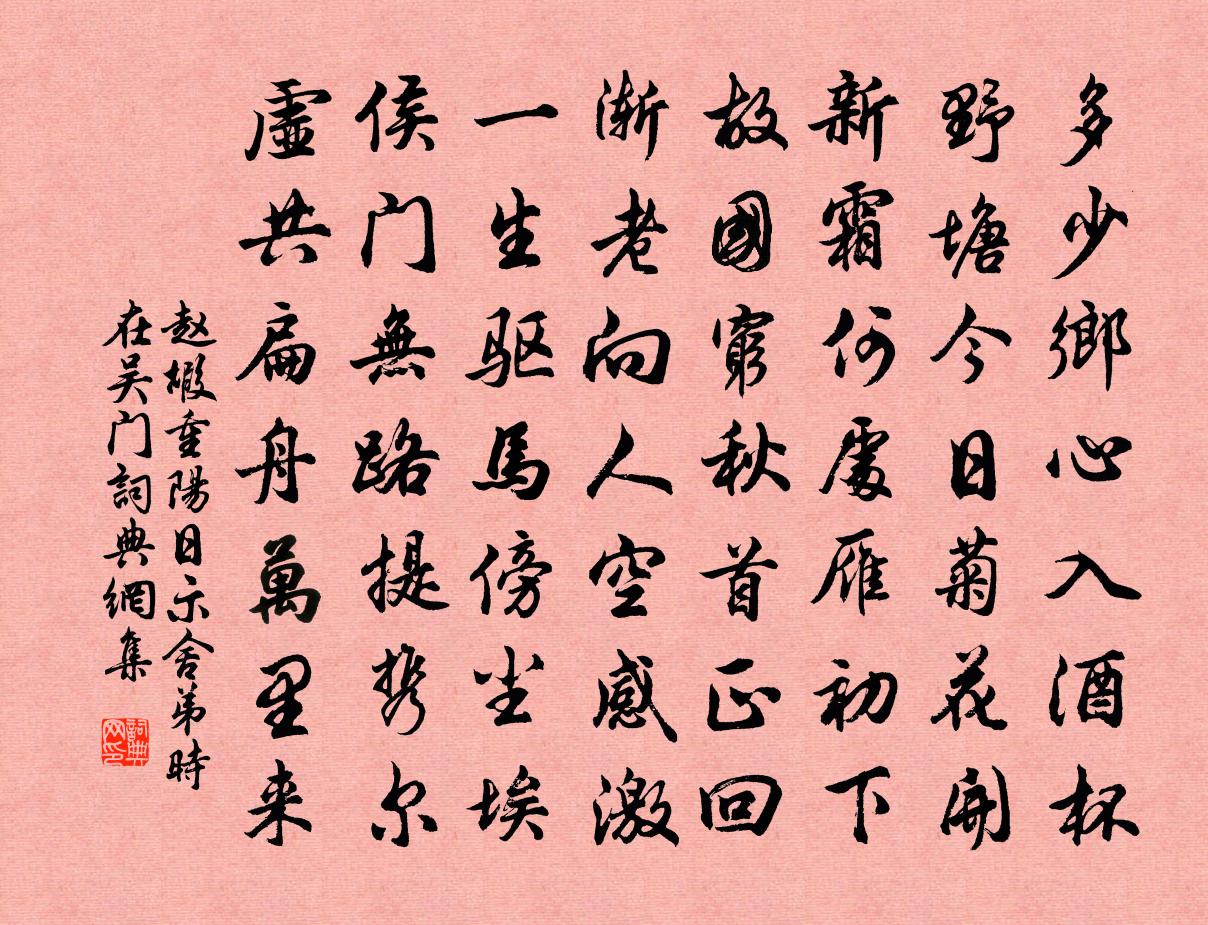 多少鄉心入酒杯
野塘今日菊花開
新霜何處雁初下
故國窮秋首正回
漸老向人空感激
一生驱馬傍尘埃
侯门無路提携尔
虛共扁舟萬里来
赵嘏重陽日示舍弟時
在吴门詞典網集
詞典网印